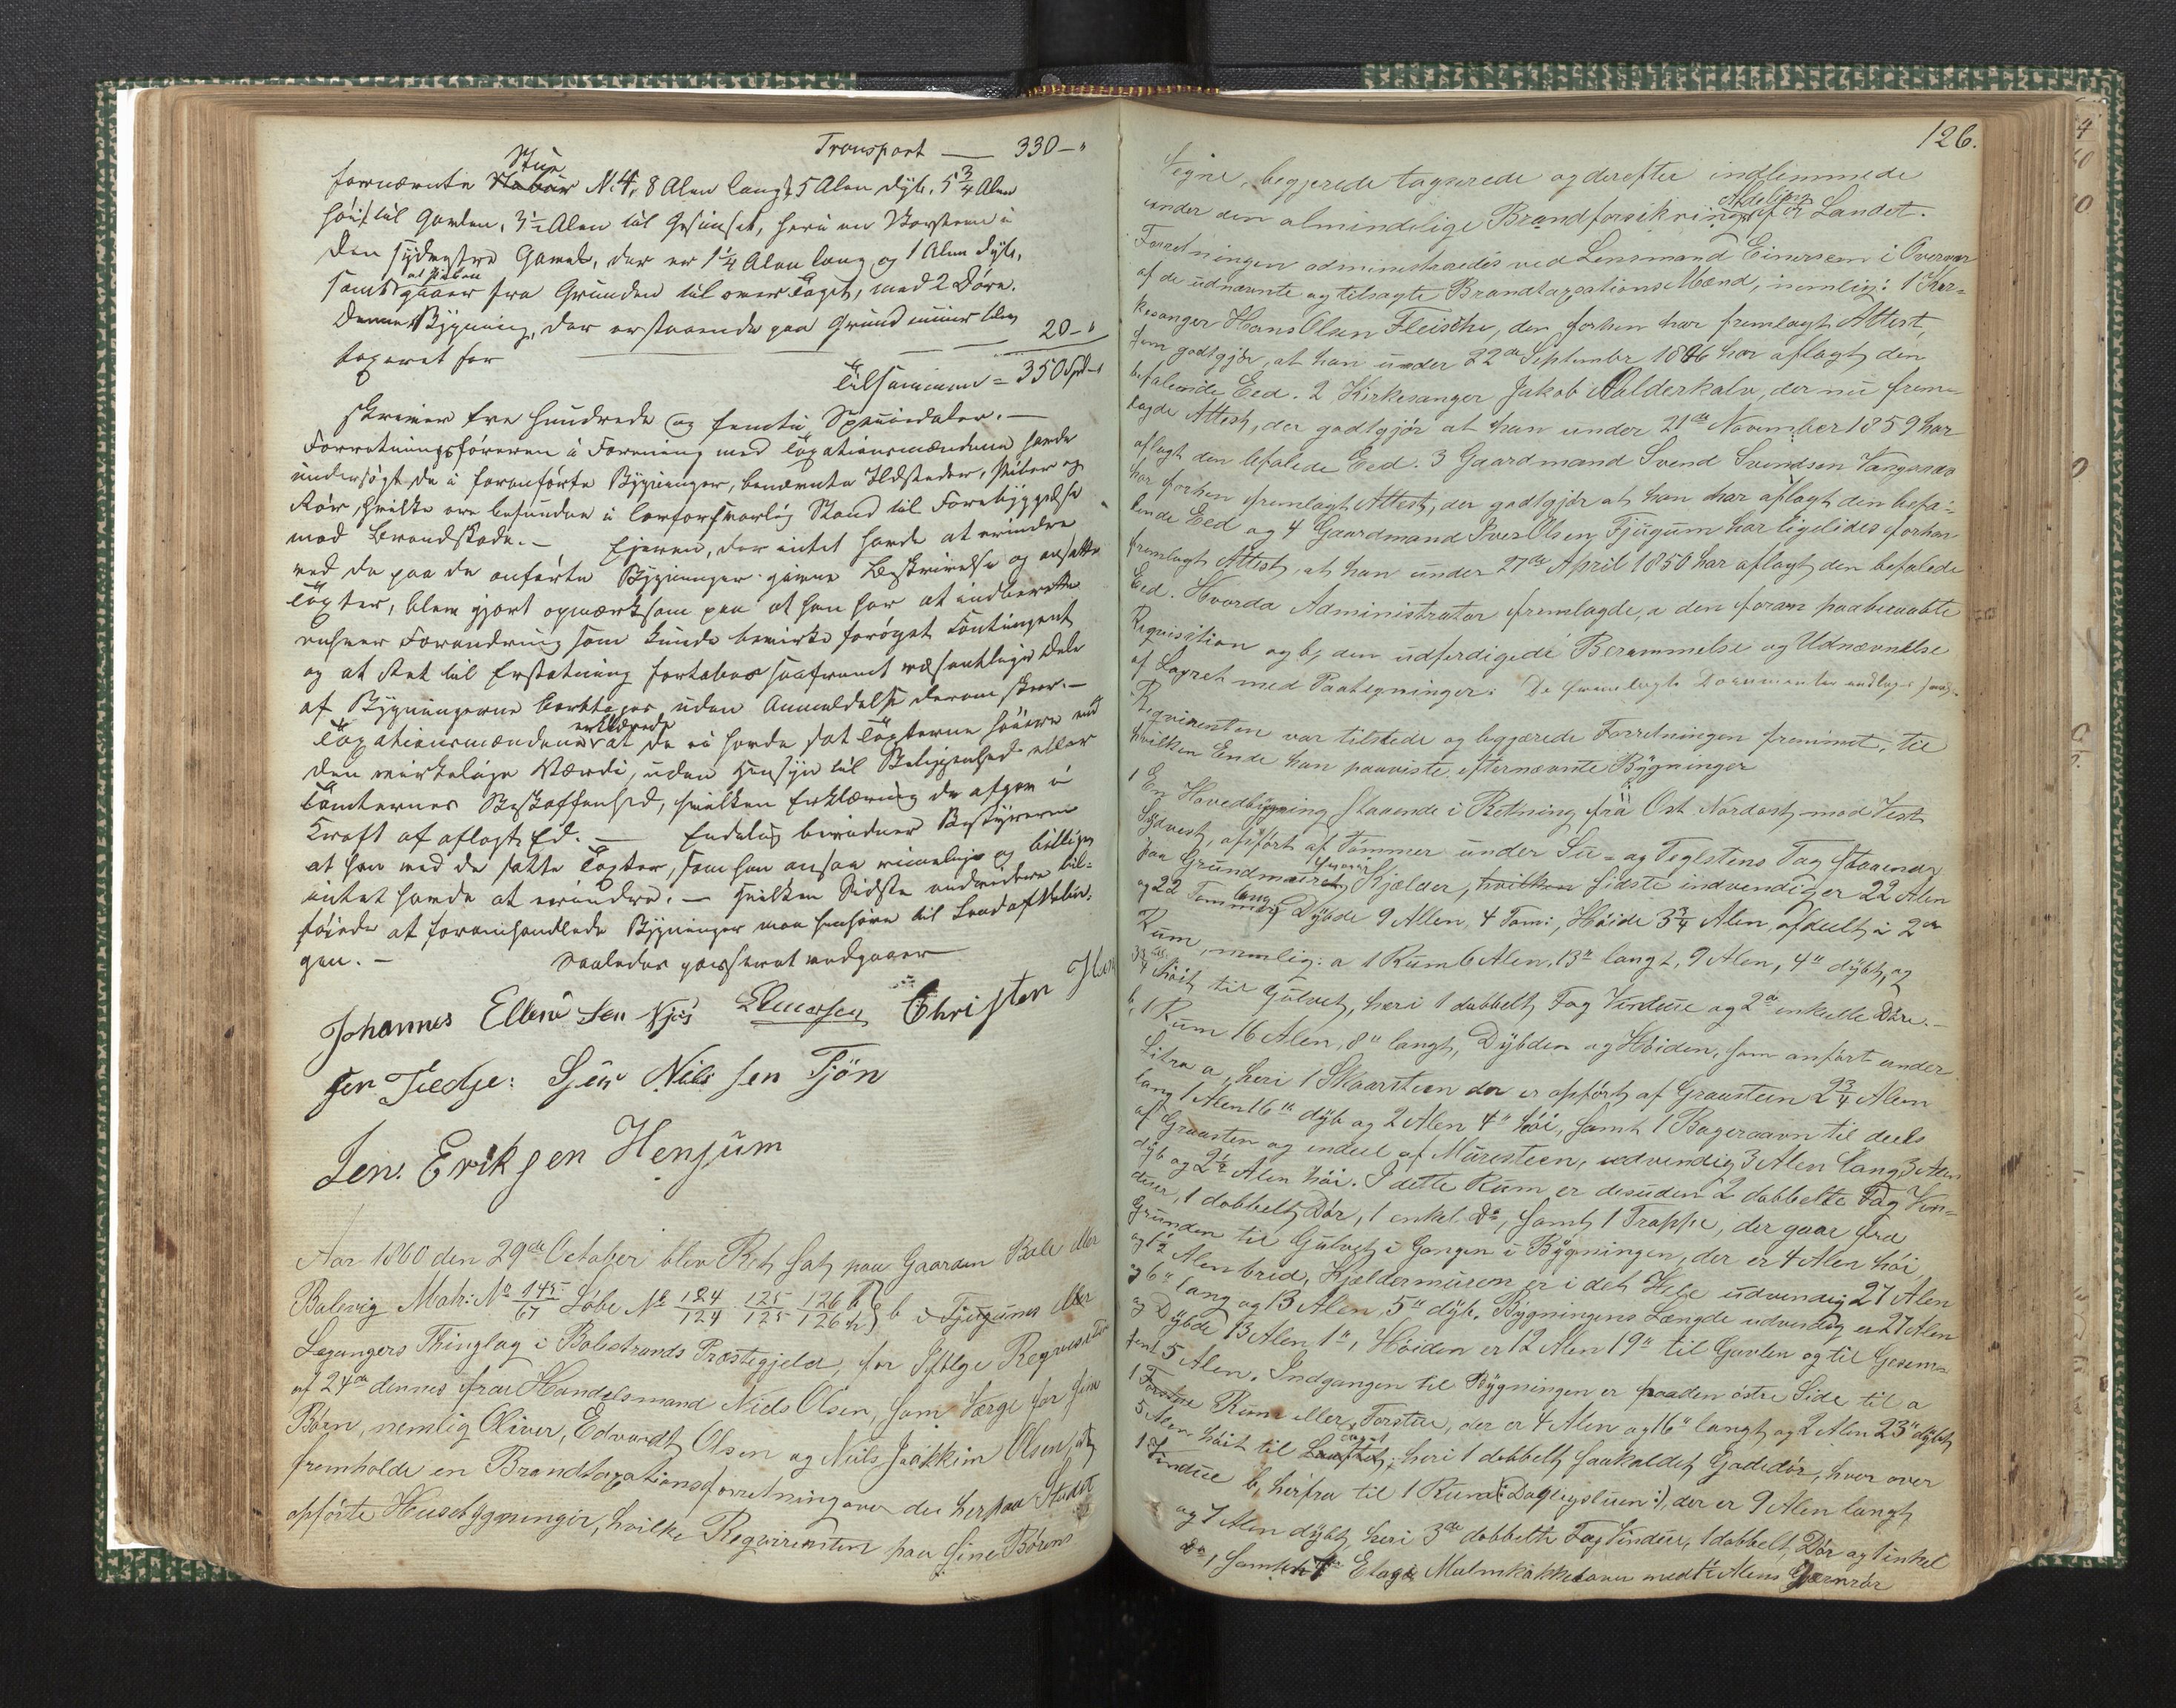 Transport — 330 – "
fornævnte Stue N. 4, 8 Alen langt, 5 Alen dyb, 5 3/4 Alen
høi til Gavlen, 3 1/2 Alen til Gesimset, heri en Skorsteen i
den sydvestre Gavel, der er 1 1/4 Alen lang og 1 Alen dyb,
samt gaaer fra Grunden til over Taget, med 2 Døre.
Denne Bygning, der er staaende paa Grundmuur blev
taxeret for — — — 20 – "
Tilsammen = 350 Spd – "
skriver tre hundrede og femti Speciedaler. —
Forretningsføreren i Forening med Taxationsmændene havde
undersøgt de i foranførte Bygninger, benævnte Ildsteder, Piber og
Rør, hvilke ere befundne i lovforsvarlig Stand til Forebyggelse
mod Brandskade. — Eieren, der intet havde at erindre
ved de paa de anførte Bygninger givne Beskrivelse og ansatte
Taxter, blev gjort opmærksom paa at han har at indberette
enhver Forandring som kunde bevirke forøget Contingent
og at Ret til Erstatning fortabes saafremt væsentlige Dele
af Bygningerne borttages uden Anmeldelse derom skeer. —
Taxationsmændene erklærede at de ei havde sat Taxterne høiere end
den virkelige Værdi, uden Hensyn til Beliggenhed eller
Tomternes Beskaffenhed, hvilken Erklæring de afgav i
Kraft af aflagt Ed. — Endelig bevidner Bestyreren
at han ved de satte Taxter, som han ansaa rimelige og billige
intet havde at erindre. — Hvilken Sidste endvidere til-
føiede at foranhandlede Bygninger maa henhøre til Landafdelin-
gen. — Saaledes passeret vedgaaer
Johannes Ellend Sen Njøs Einersen Christen
sen Tiedje: Sjur Nils sen Tjøn
Jen. Erik sen Henjum
Aar 1860 den 29de October blev Ret sat paa Gaarden Bale eller
Balevig Matr: No 145/67 Løbe No 124/124 125/125 126 b/126 b b i Fjugums eller
Leganger Thinglag i Balestrands Præstegjeld, for Iflge Reqvisition
af 24de dennes fra Handelsmand Niels Olsen, som Værge for sine
Børn, nemlig Oliver, Edvardt Olsen og Niels Joakkim Olsen, at
fremholde en Brandtaxationsforretning over de her paa Stedet
opførte Huusebygninger, hvilke Reqvirenten paa sine Børens
126.
Vegne, begjerede taxerede og derefter indlemmede
under den almindelige Brandforsikrings Afdeling for Landet.
Forretningen administreredes ved Lensmand Einersen i Overvær
af de udnævnte og tilsagte BrandtaxationsMænd, nemlig: 1 Kir-
kesanger Hans Olsen Fleische, der forhen har fremlagt Attest,
som godtgjør, at han under 22de September 1846 har aflagt den
befalende Eed. 2 Kirkesanger Jakob Nalderkalv, der nu frem-
lagde Attest, der godtgjør at han under 21de November 1859 har
aflagt den befalede Eed. 3 Gaardmand Svend Svendsen
har forhen fremlagt Attest, der godtgjør at han har aflagt den befa-
lende Eed og 4 Gaardmand Iver Olsen Fjugum har ligeledes forhen
fremlagt Attest, at han under 27de April 1850 har aflagt den befalede
Eed. Hvorda Administrator fremlagde, a den foran paaberaabte
Reqvisition og b, den udferdigede Berammelse og Udnævnelse
af Lagret med Paategninger: De fremlagte Documenter
Reqvirenten var tilstede og begjærede Forretningen fremmet, til
hvilken Ende han paaviste efternævnte Bygninger
1 En Hovedbygning staaende i Retning fra Ost Nordost mod Vest
Sydvest, opført af Tømmer under Su- og Teglstens Tag staaende
paa Grundmuret Kjælder, hvilken sidste indvendig er 22 Alen
og 22 Tommer lang Dybde 9 Allen, 4 Tom:, Høide 3 3/4 Alen, afdeelt i 2de
Rum, nemlig: a 1 Rum 6 Alen, 13" langt, 9 Alen, 4" dybt, og
3 3/4 Al: høit til Gulvet, heri 1 dobbelt Fag Vindue og 2de enkelte Døre. —
b, 1 Rum 16 Alen, 8" langt, Dybden og Høiden, som anført under
Litra a, heri 1 Skaarsteen der er opført af Graasteen 2 3/4 Alen
lang 1 Alen 16" dyb og 2 Alen 4" høi, samt 1 Bagerovn til deels
af Graasten og endeel af Mursteen, udvendig 3 Alen lang, 3 Alen
dyb og 2 1/2 Alen høi. I dette Rum er desuden 2 dobbelte Fag Vin-
duer, 1 dobbelt Dør, 1 enkel do, samt 1 Trappe, der gaar fra
Grunden til Gulvet i Gangen i Bygningen, der er 4 Alen høi
og 1 1/2 Alen bred, Kjældermuren er i det Hele udvendig 27 Alen
og 6" lang og 13 Alen, 5" dyb. Bygningens Længde udvendig er 27 Alen
og Dybde 13 Alen 1", Høiden er 12 Alen 19" til Gavlen og til Gesim-
sent 5 Alen. Indgangen til Bygningen er paa den østre Side til a
1 Forstue Rum eller Forstue, der er 4 Alen og 16" langt og 2 Alen 23" dybt
5 Alen høit til Loftet, heri 1 dobbelt saakaldet Gadedør, hver over
1 Vindue b, herfra til 1 Rum (: Dagligstuen :), der er 9 Alen langt
og 7 Alen dybt, heri 3de dobbelte Fag Vinduer, 1 dobbelt Dør og 1 enkel
do, samt Etage Malmkakkelovn med 1/2 Alens Jærnrør